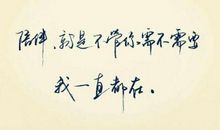 陪伴，就是不管你需不需要
我一直都在。